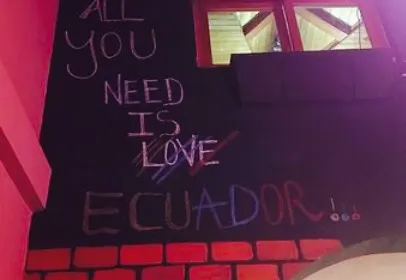 ALL
YOU
NEED
IS
LOVE
ECUADOR!!!